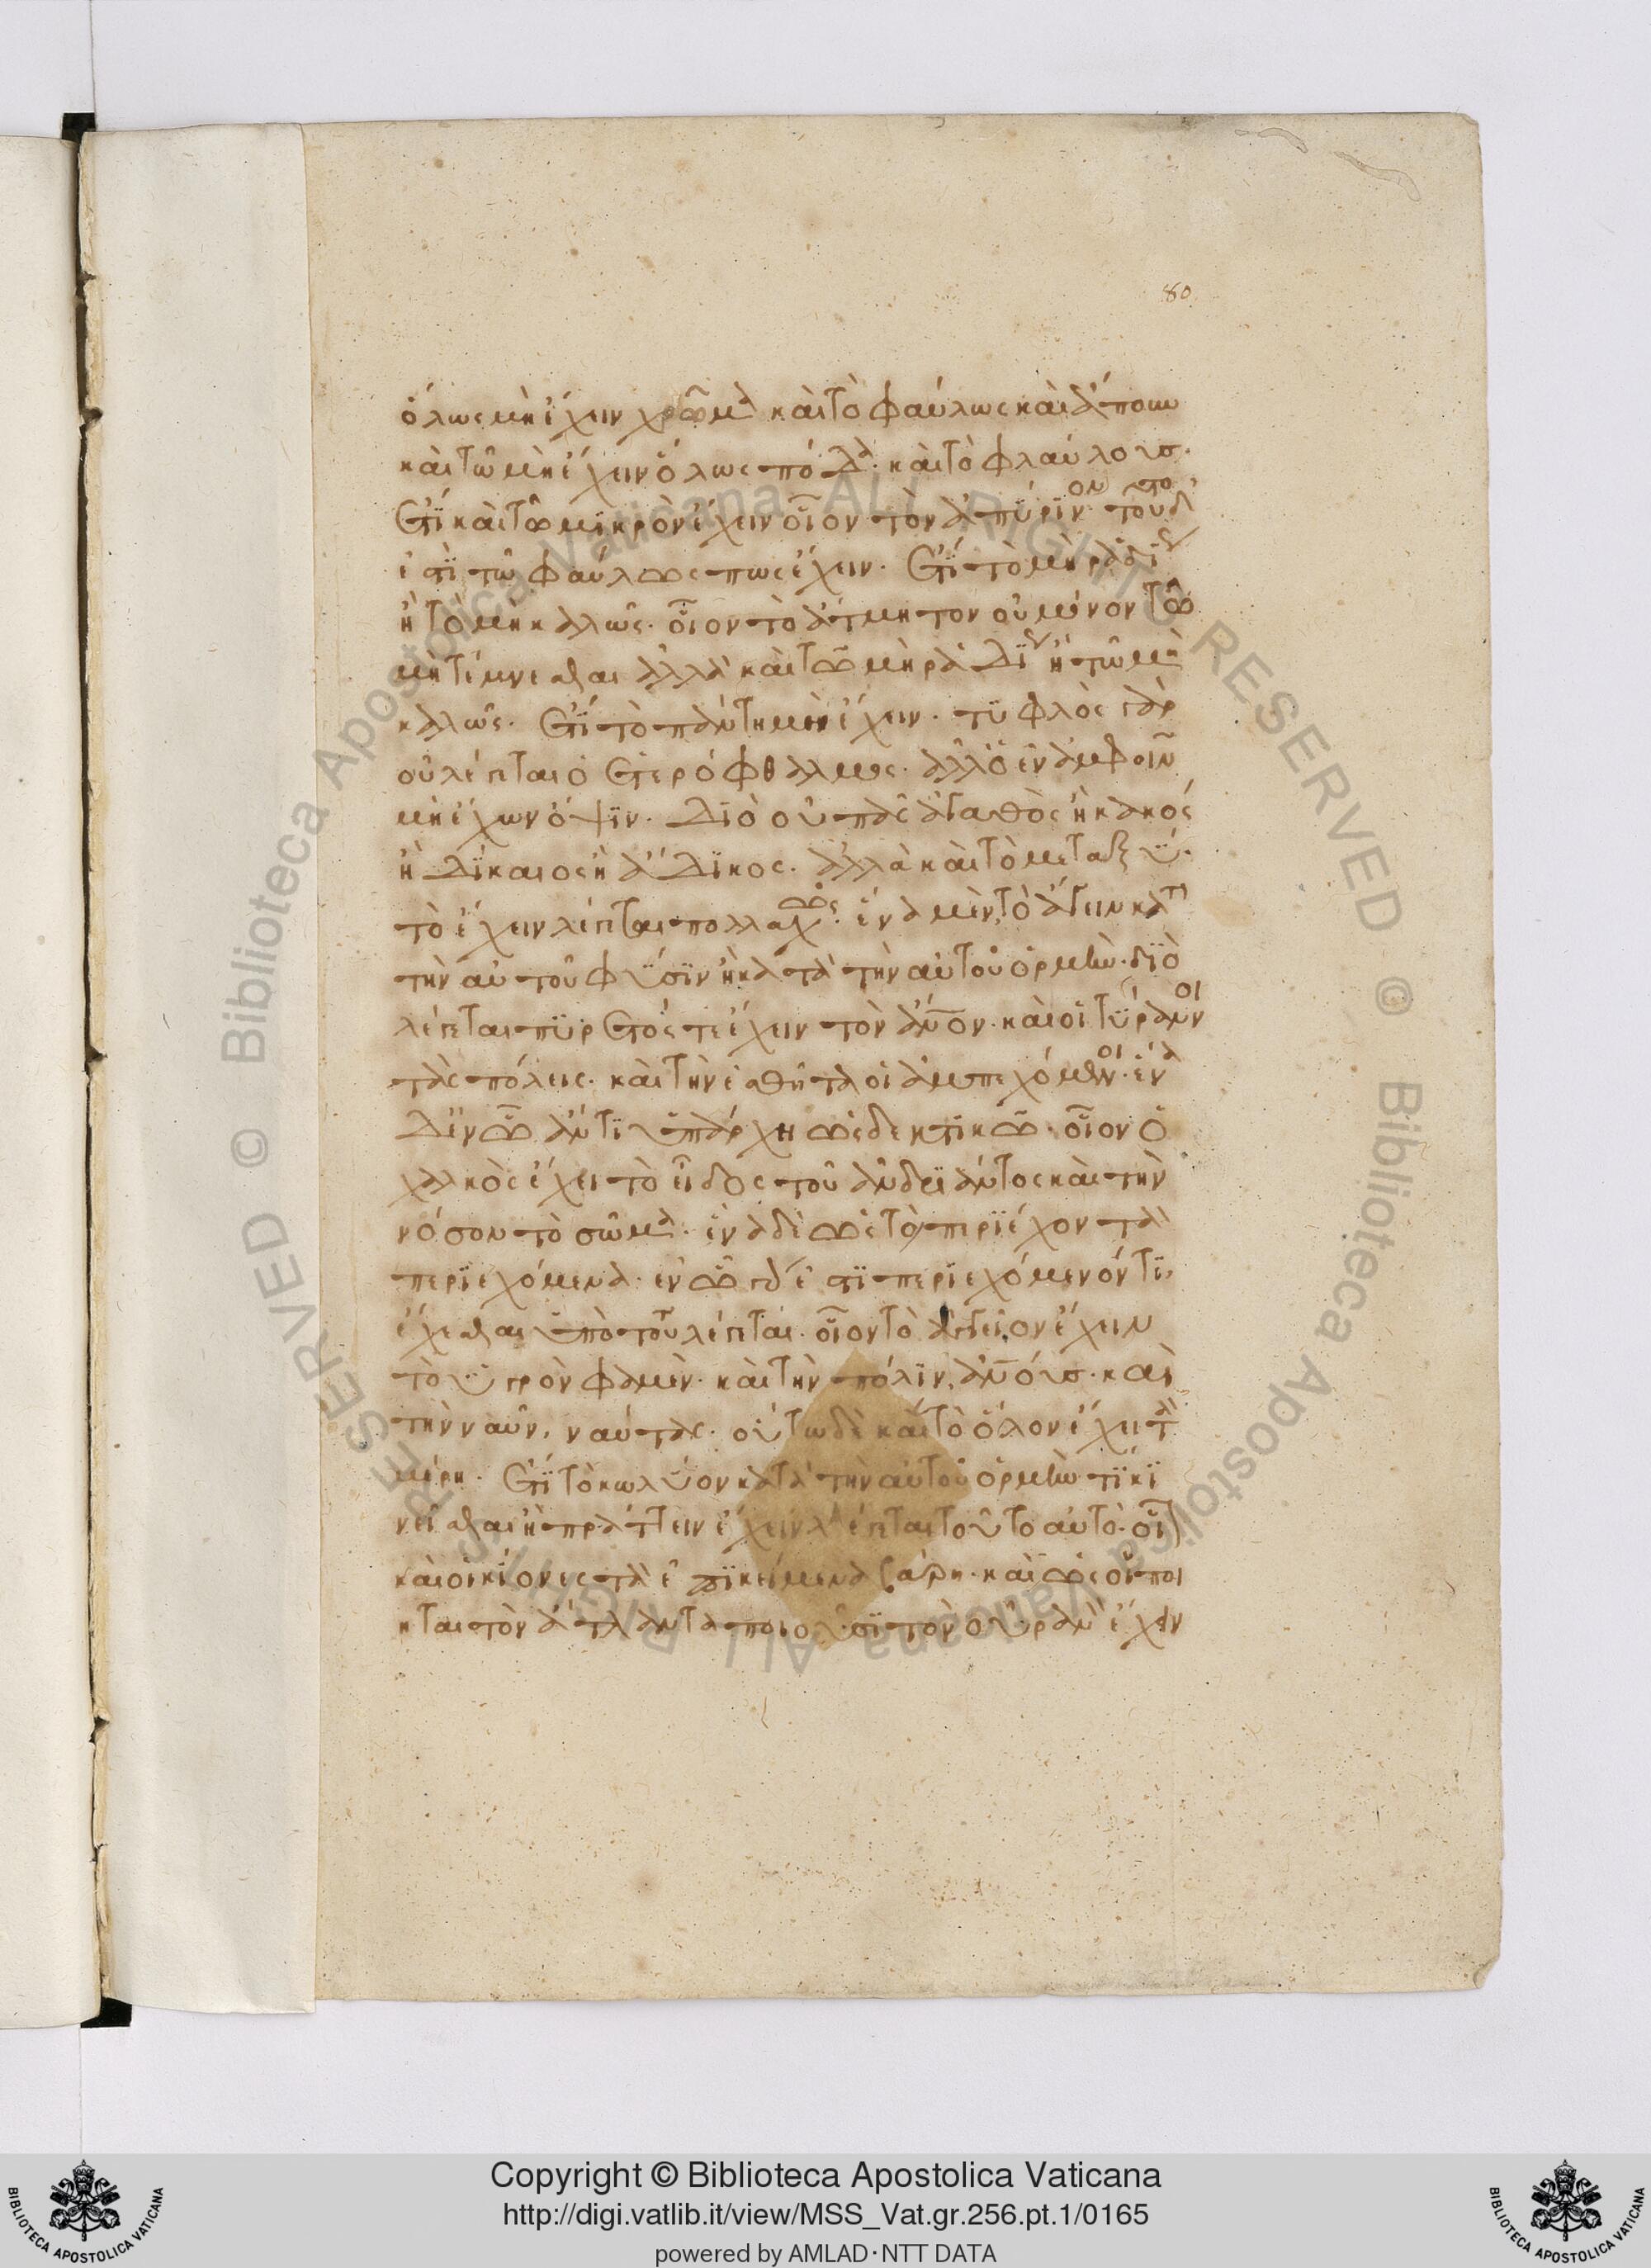 80
ὅλως μὴ ἔχειν χρῶμα καὶ τὸ φαύλως καὶ ἄπουν
καὶ τῶ μὴ ἔχειν ὅλως πόδα· καὶ τὸ φλαύλους·
ἔτι καὶ τῶ μικρὸν ἔχειν οἷον τὸν ἀπύρινον τοῦτο δ'
ἐστὶ τῶ φαύλως πως ἔχειν· ἔτι τὸ μὴ ῥαδίως
ἢ τὸ μὴ καλῶς· οἷον τὸ ἄτμητον οὐ μόνον τῶ
μὴ τέμνεσθαι ἀλλὰ καὶ τῶ μὴ ῥαδίως ἢ τῶ μὴ
καλῶς· ἔτι τὸ πάντη μὴ ἔχειν· τυφλὸς γὰρ
οὐ λέγεται ὁ ἑτερόφθαλμος· ἀλλ' ὁ ἐν ἀμφοῖν
μὴ ἔχων ὄψιν· διὸ οὐ πᾶς ἀγαθὸς ἢ κακός
ἢ δίκαιος ἢ ἄδικος· ἀλλὰ καὶ τὸ μεταξύ·
τὸ ἔχειν λέγεται πολλαχῶς· ἕνα μὲν τὸ ἄγειν κατὰ
τὴν αὐτοῦ φύσιν ἢ κατὰ τὴν αὐτοῦ ὁρμήν· διὸ
λέγεται πυρετός τε ἔχειν τὸν ἄνον· καὶ οἱ τύραννοι
τὰς πόλεις· καὶ τὴν ἐσθῆτα οἱ ἀμπεχόμενοι· ἕνα
δ' ἐν ᾧ ἄν τι ὑπάρχη ὡς δεκτικῶ· οἷον ὁ
χαλκὸς ἔχει τὸ εἶδος τοῦ ἀνδριάντος καὶ τὴν
νόσον τὸ σῶμα· ἕνα δὲ ὡς τὸ περιέχον τὰ
περιεχόμενα· ἐν ᾧ γάρ ἐστι περιεχόμενόν τι,
ἔχεσθαι ὑπὸ τούτου λέγεται· οἷον τὸ ἀγγεῖον ἔχειν
τὸ ὑγρὸν φαμὲν· καὶ τὴν πόλιν, ἀνους· καὶ
τὴν ναῦν, ναύτας· οὕτω δὲ καὶ τὸ ὅλον ἔχει τὰ
μέρη· ἔτι τὸ κωλύον κατὰ τὴν αὐτοῦ ὁρμήν τι κι
νεῖσθαι ἢ πράττειν ἔχειν λέγεται τοῦτο αὐτό· οἷον
καὶ οἱ κίονες τὰ ἐπικείμενα βάρη· καὶ ὡς οἱ ποι
ηταὶ τὸν ἄτλαντα ποιοῦσι τὸν οὐρανὸν ἔχειν
Copyright © Biblioteca Apostolica Vaticana
http://digi.vatlib.it/view/MSS_Vat.gr.256.pt.1/0165
powered by AMLAD·NTT DATA